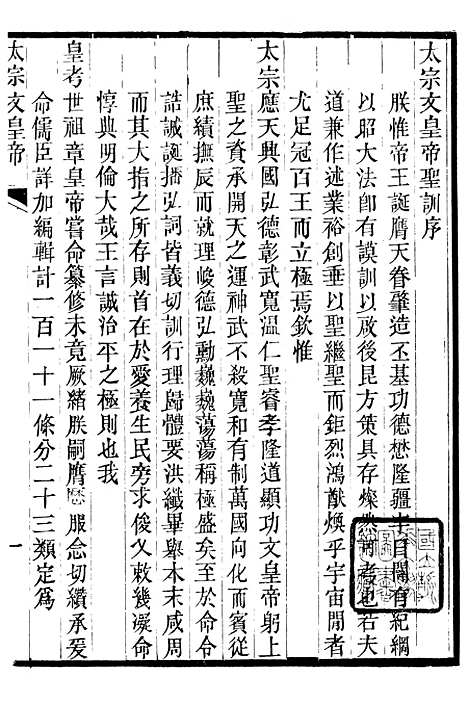 太宗文皇帝聖訓序
朕惟帝王誕膺天眷肇造丕基功德懋隆疆宇日闢有紀綱
以昭大法卽有謨訓以啟後昆方策具存燦然可考也若夫
道兼作述業裕創垂以聖繼聖而鉅烈鴻猷煥乎宇宙閒者
尤足冠百王而立極焉欽惟
太宗應天興國弘德彰武寬温仁聖睿孝隆道顯功文皇帝躬上
聖之資承開天之運神武不殺寬和有制萬國向化而賓從
庶績撫辰而就理峻德弘勳巍巍蕩蕩稱極盛矣至于命令
誥誡誕播弘詞皆義切訓行理歸體要洪纖畢舉本末咸周
而其大指之所存則首在於愛養生民旁求俊乂敕幾凝命
惇典明倫大哉王言誠治平之極則也我
皇考世祖章皇帝嘗命纂修未竟厥緒朕嗣膺曆服念切纘承爰
命儒臣詳加編輯計一百一十一條分二十三類定爲
太宗文皇帝
一